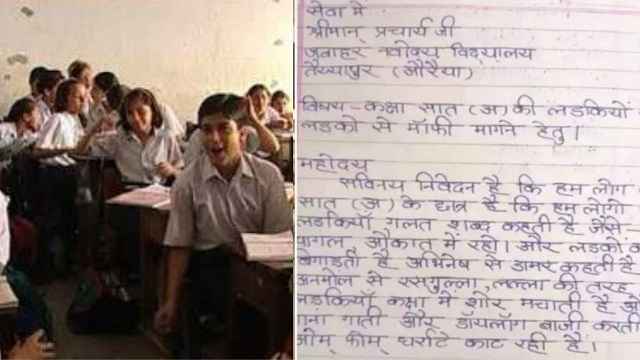 सेवा में
श्रीमान् प्रचार्य जी
जवाहर नवोदय विद्यालय
तैय्यापुर (औरैया)
विषय - कक्षा सात (अ) की लडकियों
लडको से मॉफी मागने हेतु।
महोदय
सविनय निवेदन है कि हम लोग
सात (अ) के छात्र है कि हम लोगो
लडकियाँ गलत शब्द कहती है जैसे -
पागल, औकात में रहो। और लडको
बिगाडती है अभिनेष से डामर कहती है
अनमोल से रसगुल्ला, लल्ला की तरह
लडकियाँ कक्षा में शोर मचाती है
गाना गाती और डॉयलॉग बाजी करती
ओम् फोम् धर्राटे काट रही है।